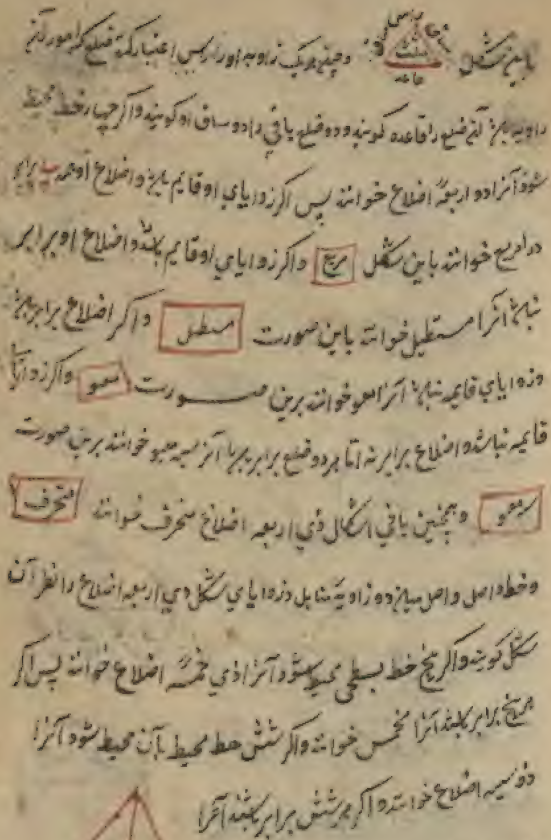 باین شکل مثلث قاعده و چون یک زاویه او را رأس اعتبار کنند ضلع که
زاویه باشد آن ضلع را قاعده کویند و دو ضلع باقی را دو ساق او کویند و اکر چهار خط محیط
شود آنرا ذو اربعة اضلاع خوانند پس اکر زوایای او قایم باشد و اضلاع او همه برابر
مربع خوانند باین شکل مربع و اکر زوایای او قایم باشد و اضلاع او برابر
نباشد آنرا مستطیل خوانند باین صورت مستطیل و اکر اضلاع برابر باشد
و زوایای قایمه نباشد آنرا معین خوانند برین صورت معین و اکر زوایا
قایمه نباشد و اضلاع برابر نه اما هر دو ضلع برابر آنرا شبیه معین خوانند برین صورت
شبیه معین و همچنین باقی اشکال ذی اربعه اضلاع منحرف خوانند منحرف
و خط واصل میان دو زاویه متقابل در زوایای شکل ذی اربعه اضلاع را قطر آن
شکل کویند و اکر پنج خط بسطحی محیط شود آنرا ذی خمسه اضلاع خوانند پس اکر
هر پنج برابر باشند آنرا مخمس خوانند و اکر شش خط محیط بآن محیط شود آنرا
ذو سته اضلاع خوانند و اکر هر شش برابر باشند آنرا